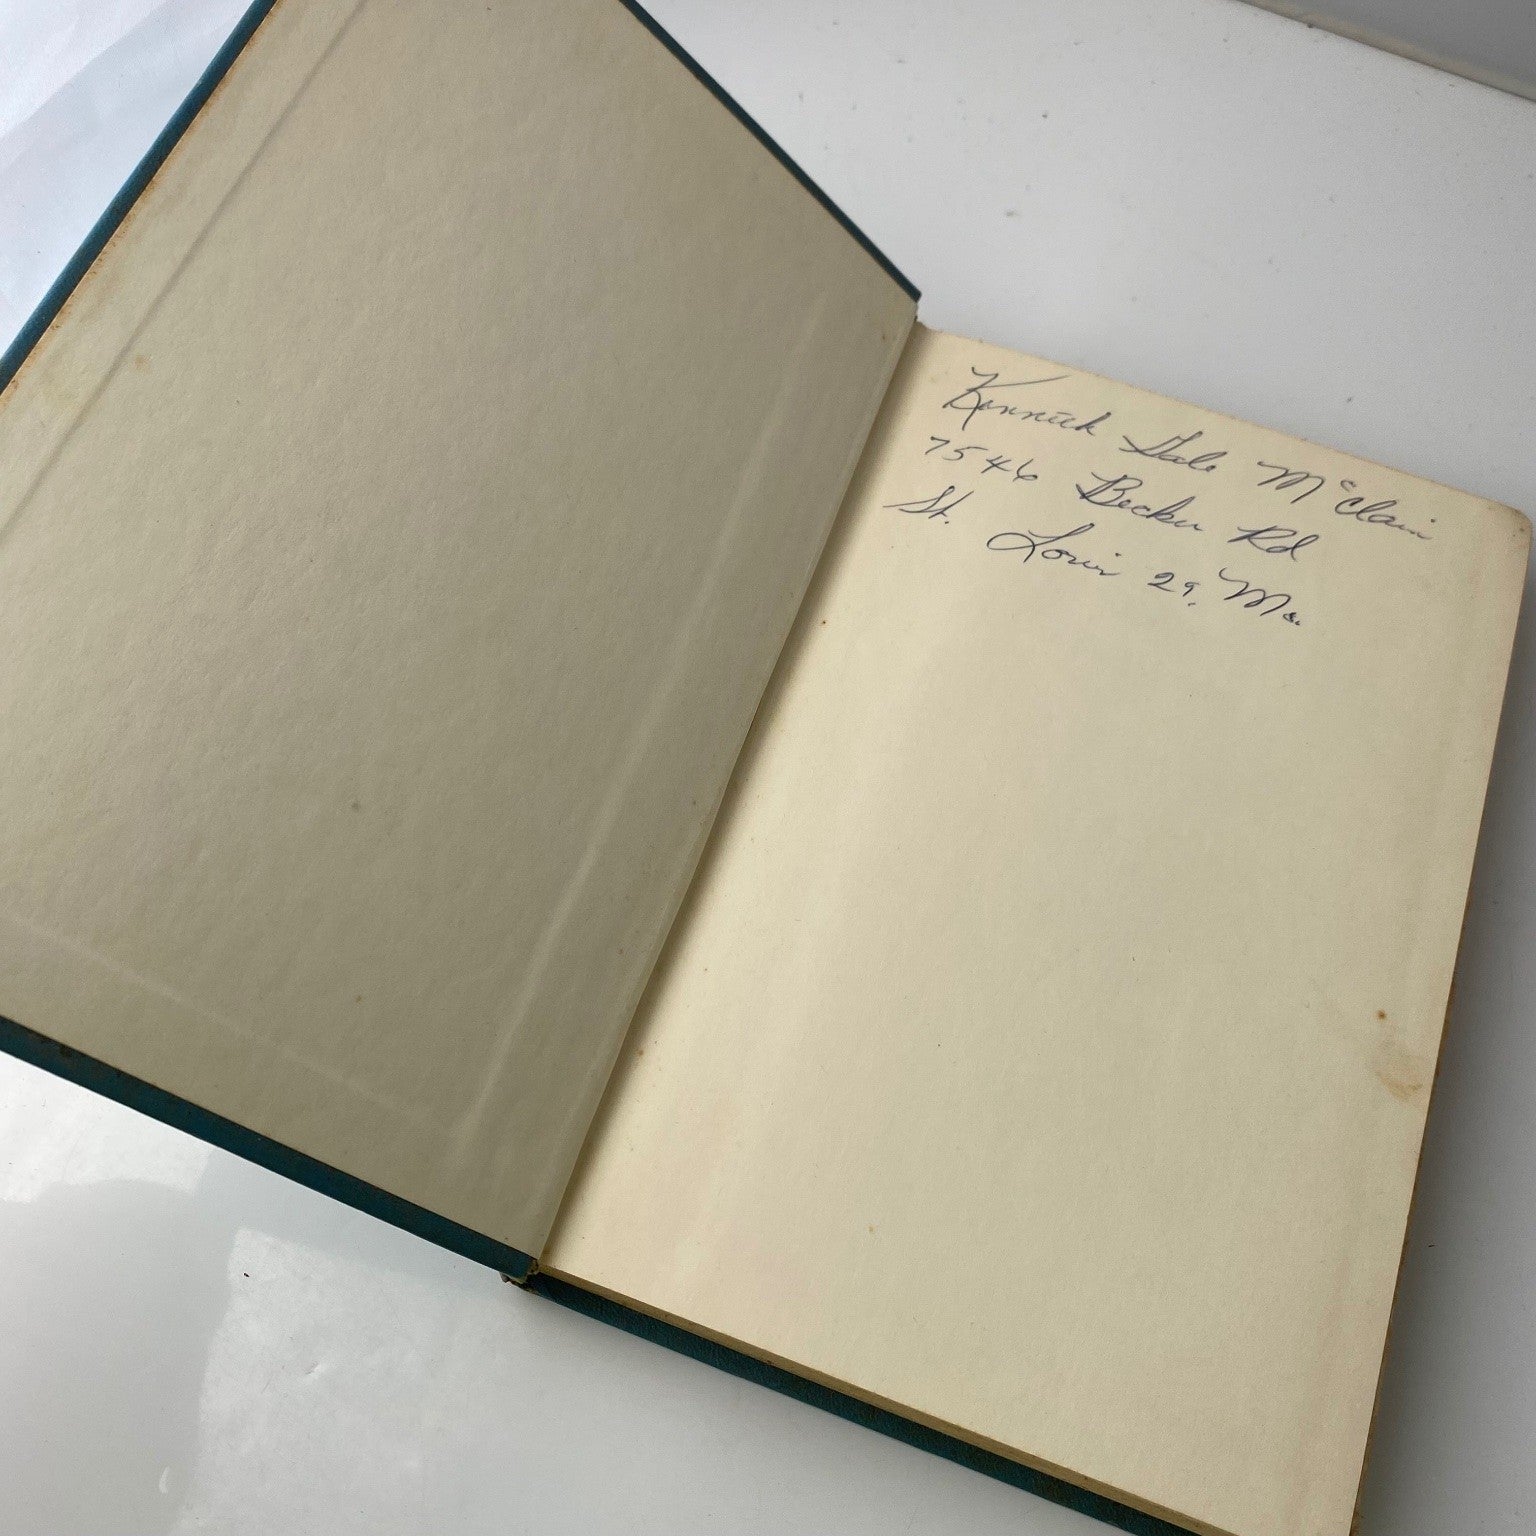 Kenneth Gale McClain
7546 Becker Rd
St. Louis 29, Mo.